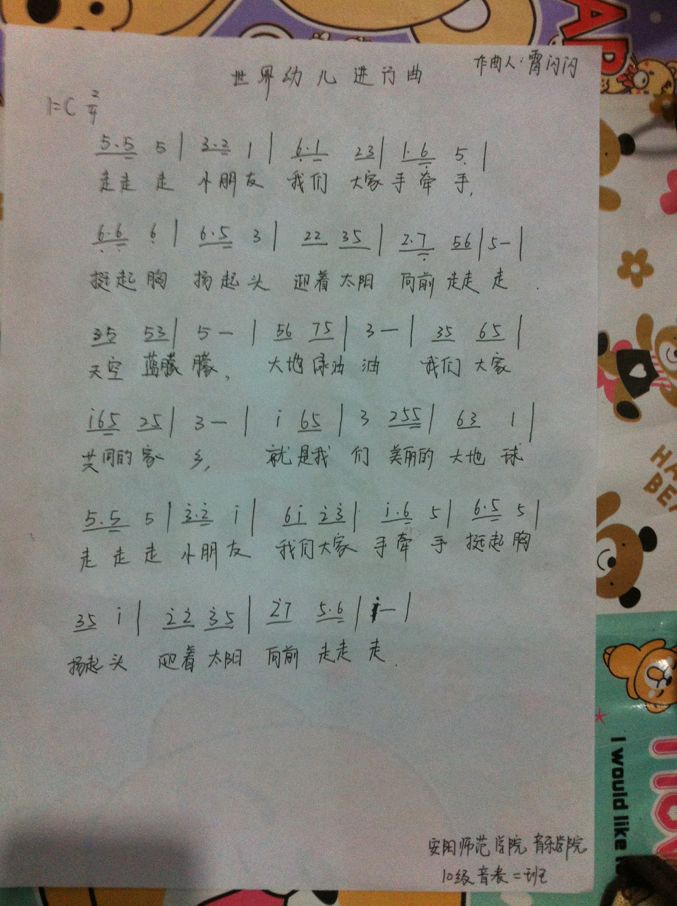 世界幼儿进行曲 作曲人:霄闪闪
1=C 2/4
5.5 5 | 3.2 1 | 6.1 23 | 1.6 5 |
走走 走 小朋友 我们 大家手牵 手,
6.6 6 | 6.5 3 | 22 35 | 2.7 56 | 5— |
挺起 胸 扬起 头 迎着 太阳 向前 走走 走.
35 53 | 5 — | 56 75 | 3 — | 35 65 |
天空 蓝朦 朦, 大地绿油 油 我们 大家
i65 25 | 3 — | i 65 | 3 255 | 63 1 |
共同的 家 乡, 就是我 们 美丽的 大地 球
5.5 5 | 3.2 i | 6i 23 | i.6 5 | 6.5 5 |
走 走 走 小朋友 我们大家 手牵 手 挺起 胸
35 i | 22 35 | 27 5.6 | i— |
扬起 头 迎着 太阳 向前 走走 走.
安阳师范学院 音乐学院
10级音表二班
HA
BEA
I would like